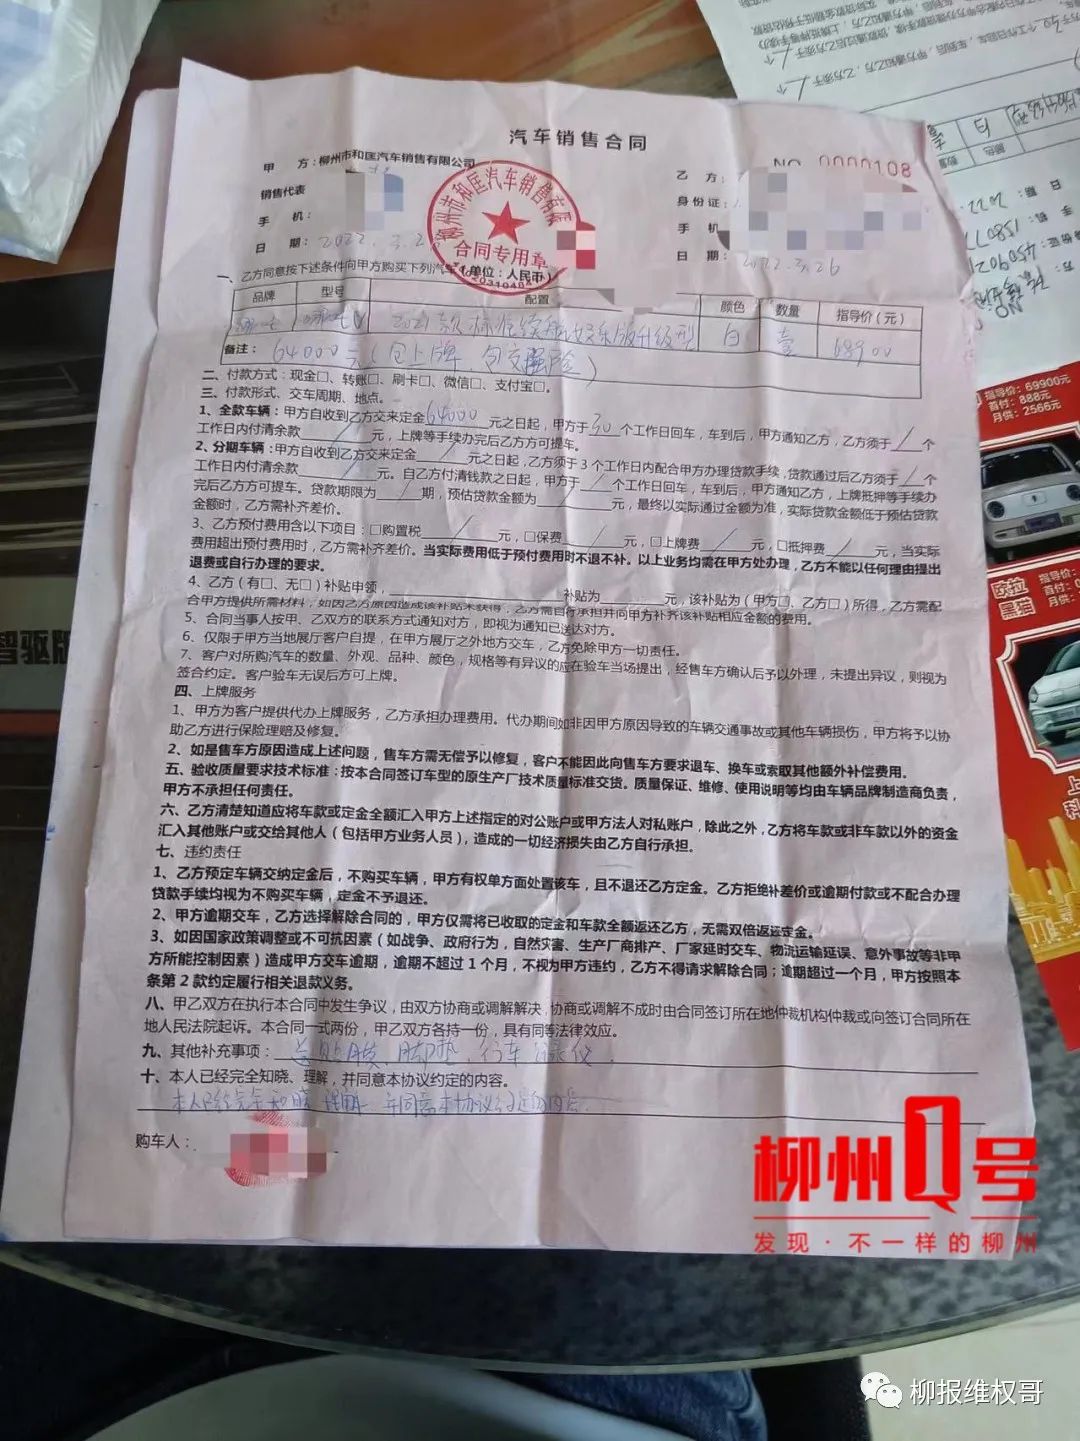 汽车销售合同
甲 方：柳州市和匡汽车销售有限公司
NO 0000108
乙 方：
销售代表
身份证：
手 机：
手 机
日 期：2022.3.2
日 期：2022.3.26
柳州市和匡汽车销售有限
合同专用章
一、乙方同意按下述条件向甲方购买下列汽车（单位：人民币）
品牌 型号 配置 颜色 数量 指导价（元）
2021款标准续航娱乐版升级型 白 壹 68900
备注： 64000元（包上牌、包交强险）
二、付款方式：现金□、转账□、刷卡□、微信□、支付宝□。
三、付款形式、交车周期、地点。
1、全款车辆：甲方自收到乙方交来定金64000元之日起，甲方于30个工作日回车，车到后，甲方通知乙方，乙方须于/个
工作日内付清余款/元，上牌等手续办完后乙方方可提车。
2、分期车辆：甲方自收到乙方交来定金/元之日起，乙方须于3个工作日内配合甲方办理贷款手续，贷款通过后乙方须于/个
工作日内付清余款/元。自乙方付清钱款之日起，甲方于/个工作日回车，车到后，甲方通知乙方，上牌抵押等手续办
完后乙方方可提车。贷款期限为/期，预估贷款金额为/元，最终以实际通过金额为准，实际贷款金额低于预估贷款
金额时，乙方需补齐差价。
3、乙方预付费用含以下项目：□购置税/元，□保费/元，□上牌费/元，□抵押费/元，当实际
费用超出预付费用时，乙方需补齐差价。当实际费用低于预付费用时不退不补。以上业务均需在甲方处办理，乙方不能以任何理由提出
退费或自行办理的要求。
4、乙方（有□、无□）补贴申领，补贴为元，该补贴为（甲方□、乙方□）所得，乙方需配
合甲方提供所需材料，如因乙方原因造成该补贴未获得，乙方需自行承担并向甲方补齐该补贴相应金额的费用。
5、合同当事人按甲、乙双方的联系方式通知对方，即视为通知已送达对方。
6、仅限于甲方当地展厅客户自提，在甲方展厅之外地方交车，乙方免除甲方一切责任。
7、客户对所购汽车的数量、外观、品种、颜色，规格等有异议的应在验车当场提出，经售车方确认后予以外理，未提出异议，则视为
签合约定。客户验车无误后方可上牌。
四、上牌服务
1、甲方为客户提供代办上牌服务，乙方承担办理费用。代办期间如非因甲方原因导致的车辆交通事故或其他车辆损伤，甲方将予以协
助乙方进行保险理赔及修复。
2、如是售车方原因造成上述问题，售车方需无偿予以修复，客户不能因此向售车方要求退车、换车或索取其他额外补偿费用。
五、验收质量要求技术标准：按本合同签订车型的原生产厂技术质量标准交货。质量保证、维修、使用说明等均由车辆品牌制造商负责，
甲方不承担任何责任。
六、乙方清楚知道应将车款或定金全额汇入甲方上述指定的对公账户或甲方法人对私账户，除此之外，乙方将车款或非车款以外的资金
汇入其他账户或交给其他人（包括甲方业务人员），造成的一切经济损失由乙方自行承担。
七、违约责任
1、乙方预定车辆交纳定金后，不购买车辆，甲方有权单方面处置该车，且不退还乙方定金。乙方拒绝补差价或逾期付款或不配合办理
贷款手续均视为不购买车辆，定金不予退还。
2、甲方逾期交车，乙方选择解除合同的，甲方仅需将已收取的定金和车款全额返还乙方，无需双倍返还定金。
3、如因国家政策调整或不可抗因素（如战争、政府行为，自然灾害、生产厂商排产、厂家延时交车、物流运输延误、意外事故等非甲
方所能控制因素）造成甲方交车逾期，逾期不超过1个月，不视为甲方违约，乙方不得请求解除合同；逾期超过一个月，甲方按照本
条第2款约定履行相关退款义务。
八、甲乙双方在执行本合同中发生争议，由双方协商或调解解决，协商或调解不成时由合同签订所在地仲裁机构仲裁或向签订合同所在
地人民法院起诉。本合同一式两份，甲乙双方各持一份，具有同等法律效应。
九、其他补充事项：送贴膜、脚垫、行车记录仪。
十、本人已经完全知晓、理解，并同意本协议约定的内容。
本人已经完全知晓、理解、并同意本协议约定的内容。
购车人：
智驱版
指导价：69900元
首付：888元
月供：2566元
欧拉
黑猫
指导价：
首付：
月供：
柳州Q号
发现·不一样的柳州
柳报维权哥